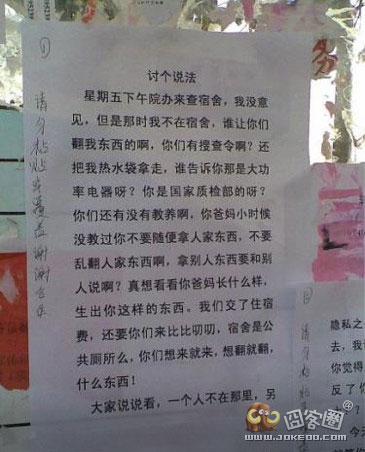 讨个说法
星期五下午院办来查宿舍，我没意
见，但是那时我不在宿舍，谁让你们
翻我东西的啊，你们有搜查令啊？还
把我热水袋拿走，谁告诉你那是大功
率电器呀？你是国家质检部的呀？
你们还有没有教养啊，你爸妈小时候
没教过你不要随便拿人家东西，不要
乱翻人家东西啊，拿别人东西要和别
人说啊？真想看看你爸妈长什么样，
生出你这样的东西。我们交了住宿
费，还要你们来比比叨叨，宿舍是公
共厕所么，你们想来就来，想翻就翻，
什么东西！
大家说说看，一个人不在那里，另
①
请勿粘贴或覆盖 谢谢合作
务
隐私之
去，我
你觉得
反了你
今
囧客圈
www.jokeoo.com